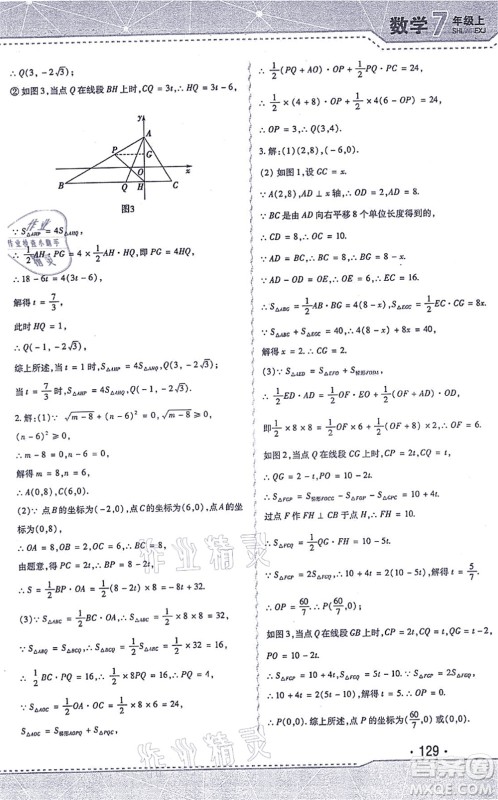 数学7年级上
SHLWEXJ
∴ Q(3, -2√3);
②如图3,当点Q在线段BH上时,CQ = 3t,∴ HQ = 3t - 6,
y
A
P
G
x
B
Q
H
C
图3
∵ S△AHP = 4S△AHQ,
∴ 1/2 AH·PG = 4 × 1/2 AH·HQ,即PG = 4HQ,
∴ 18 - 6t = 4(3t - 6),
解得 t = 7/3,
此时 HQ = 1,
∴ Q(-1, -2√3),
综上所述,当 t = 7/3 时,S△AHP = 4S△AHQ,Q(3, -2√3);
当 t = 7/3 时,S△AHP = 4S△AHQ,Q(-1, -2√3).
2.解:(1)∵ √m-8 + (n-6)² = 0, √m-8 ≥ 0,
(n-6)² ≥ 0,
∴ m - 8 = 0, n - 6 = 0,
解得 m = 8, n = 6,
∴ A(0,8), C(6,0).
(2)∵ 点B的坐标为(-2,0),点C的坐标为(6,0),点A的坐标为(0,8),
∴ OA = 8, OB = 2, OC = 6, ∴ BC = 8,
由题意,得 PC = 2t, ∴ BP = 8 - 2t,
∴ S = 1/2 BP·OA = 1/2(8 - 2t) × 8 = -8t + 32.
(3)∵ S△ABC = 1/2 BC·OA = 1/2 × 8 × 8 = 32,
∵ S△ABC = S△ABQ + S△BCQ, ∴ S△BCQ = S△ABC - S△ABQ = 16,
∴ 1/2 BC·PQ = 16, ∴ 1/2 × 8PQ = 16, ∴ PQ = 4,
S△AOC = 1/2 OA·OC = 1/2 × 8 × 6 = 24,
∵ S△AOC = S梯形AOPQ + S△PQC,
∴ 1/2(PQ + AO)·OP + 1/2 PQ·PC = 24,
∴ 1/2 × (4 + 8)·OP + 1/2 × 4(6 - OP) = 24,
∴ OP = 3, ∴ Q(3,4).
3.解:(1)(2,8), (-6,0).
(2)如图1,设CG = x,
∵ A(2,8), ∴ AD ⊥ x轴,
∵ BC是由AD向右平移8个单位长度得到的,
∴ BC ⊥ x轴,
∴ AD = BC = 8, OC = 10, ∴ AB = CD = 8.
∵ AD = OD = OE, ∴ OE = 6, ∴ EC = 16.
∴ S△ABG = 1/2 AB·BG = 4(8 - x), S△EGC = 1/2 EC·CG = 8x.
∵ S△ABG + S△EGC = 40, ∴ 4(8 - x) + 8x = 40,
解得 x = 2. ∴ CG = 2.
(3)∵ S△AED = S△EOF + S梯形FOAD,
∴ 1/2 ED·AD = 1/2 OF·EO + 1/2(OF + AD)·OD,
即 1/2 × 8 × 8 = 1/2 OF × 6 + 1/2(OF + 8) × 2, ∴ OF = 6.
如图2,当点Q在线段CG上时,CP = 2t, CQ = t,
∴ QG = 2 - t, PO = 10 - 2t.
∴ S△FGP = S梯形FOCG - S△FOP - S△GPC = 10 + 4t.
过点F作FH ⊥ CD于点H,则FH = OC = 10,
∴ S△FGQ = 1/2 QG·FH = 10 - 5t.
∵ S△FGP = 2S△FGQ, ∴ 10 + 4t = 20 - 10t,解得 t = 5/7.
∴ OP = 60/7. ∴ P(60/7, 0);
如图3,当点Q在线段GB上时,CP = 2t, CQ = t, QG = t - 2,
PO = 10 - 2t.
∴ S△FGP = 10 + 4t, S△FGQ = 5t - 10. ∵ S△FGP = 2S△FGQ,
∴ 10 + 4t = 2(5t - 10),解得 t = 5.
∴ P(0,0). 综上所述,点P的坐标为(60/7, 0)或(0,0).
作业精灵
作业精灵
·129·